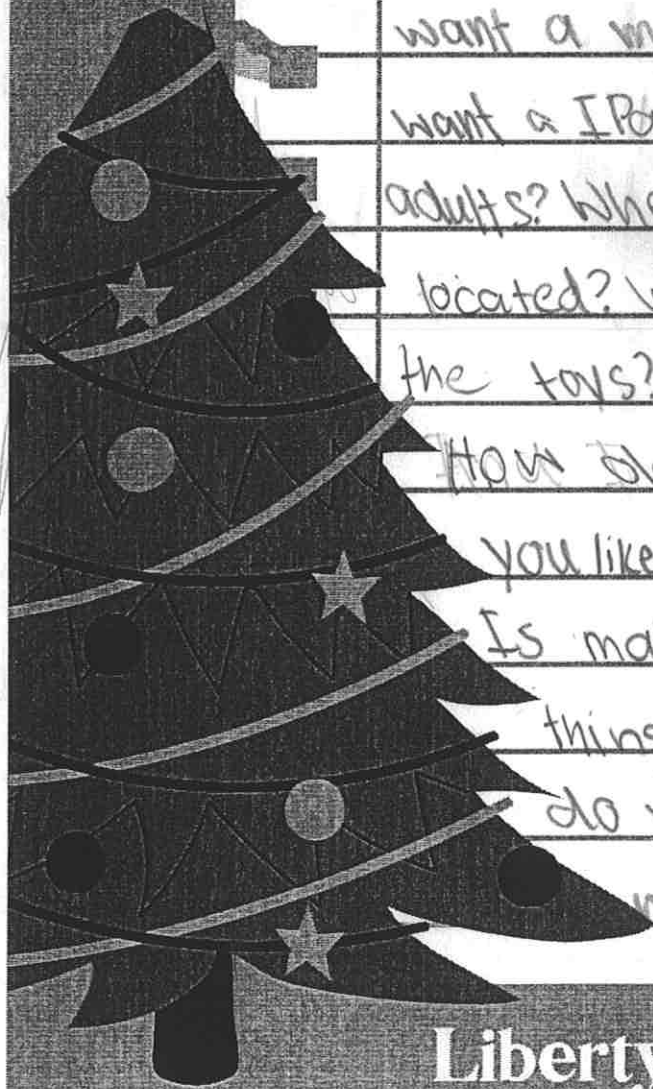 want a m
want a IPa
adults? Wha
located? W
the toys?
How do
you like
Is ma
thing
do y
Liberty